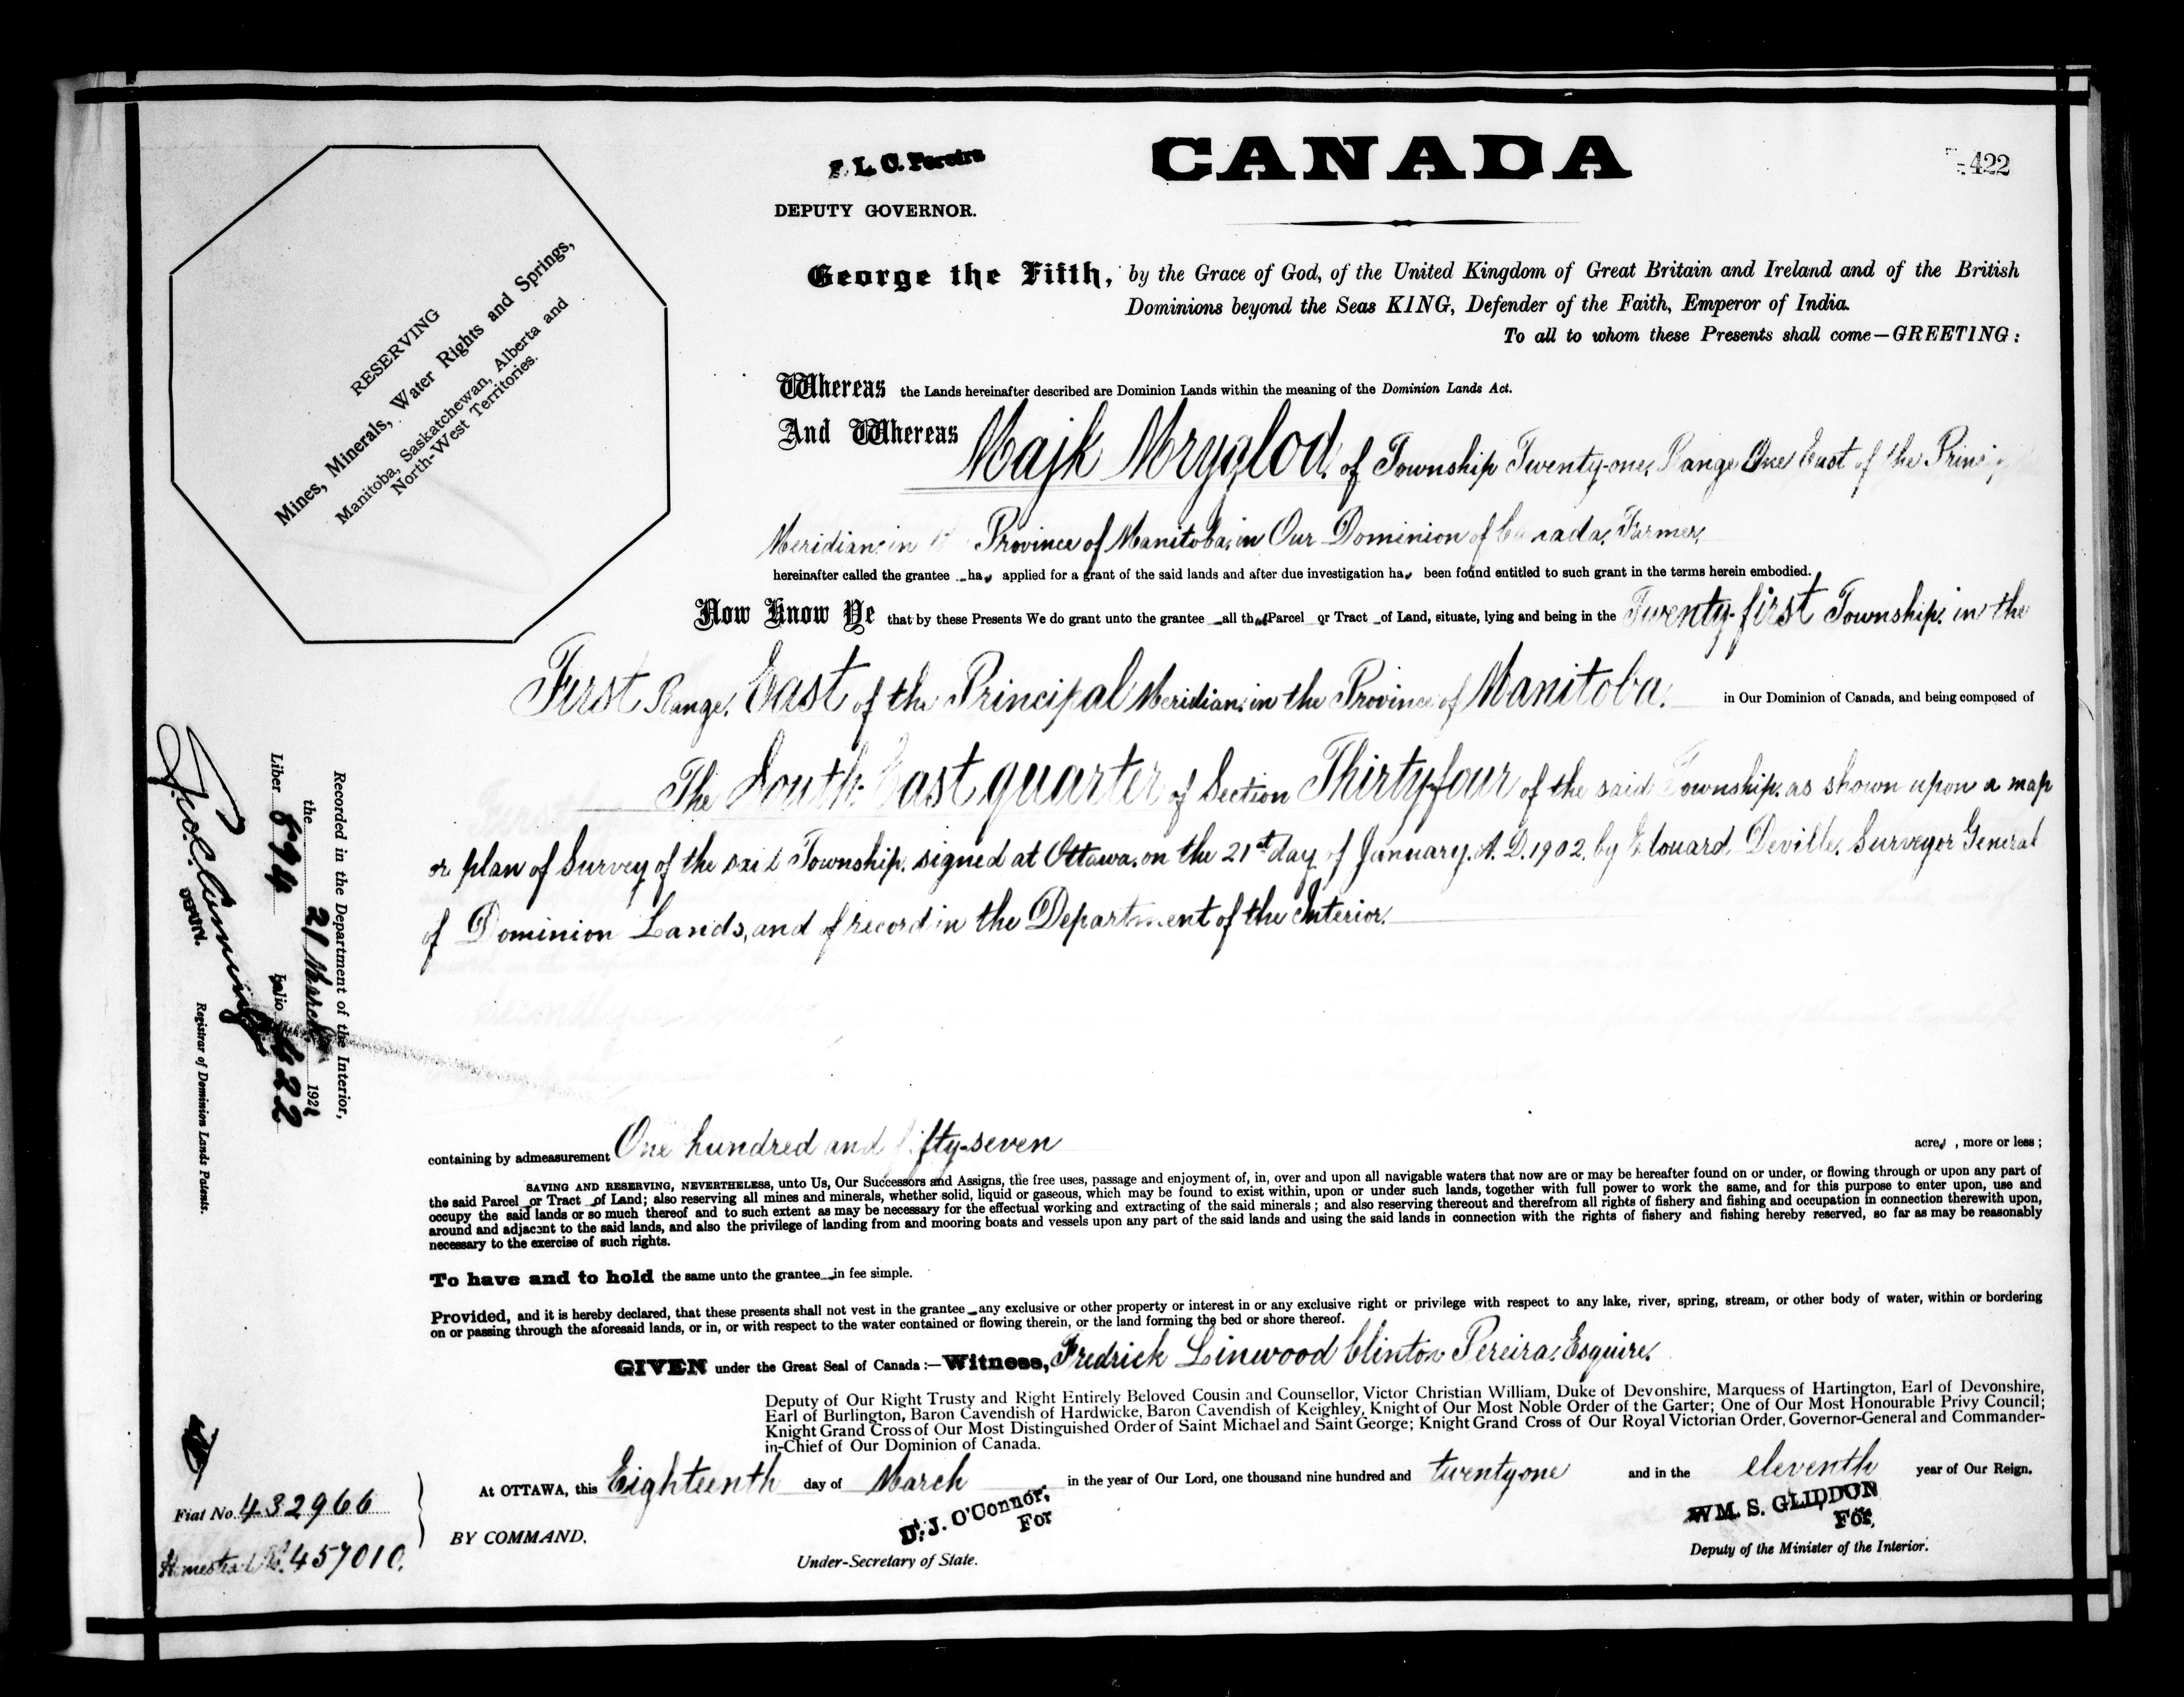 CANADA
422
F. L. C. Pereira
DEPUTY GOVERNOR.
George the Fifth, by the Grace of God, of the United Kingdom of Great Britain and Ireland and of the British
Dominions beyond the Seas KING, Defender of the Faith, Emperor of India.
To all to whom these Presents shall come—GREETING:
RESERVING
Mines, Minerals, Water Rights and Springs,
Manitoba, Saskatchewan, Alberta and
North-West Territories.
Whereas the Lands hereinafter described are Dominion Lands within the meaning of the Dominion Lands Act.
And Whereas Majk Mryglod, of Township Twenty-one, Range One East of the Princi
Meridian, in Province of Manitoba, in Our Dominion of Canada, Farmer,
hereinafter called the grantee has applied for a grant of the said lands and after due investigation has been found entitled to such grant in the terms herein embodied.
Now Know Ye that by these Presents We do grant unto the grantee all that Parcel or Tract of Land, situate, lying and being in the Twenty-first Township, in the
First Range, East of the Principal Meridian, in the Province of Manitoba, in Our Dominion of Canada, and being composed of
The South East quarter of Section Thirty-four of the said Township, as shown upon a map
or plan of Survey of the said Township, signed at Ottawa, on the 21st day of January, A. D. 1902, by Edouard Deville, Surveyor General
of Dominion Lands, and of record in the Department of the Interior.
containing by admeasurement One hundred and fifty-seven acres, more or less;
SAVING AND RESERVING, NEVERTHELESS, unto Us, Our Successors and Assigns, the free uses, passage and enjoyment of, in, over and upon all navigable waters that now are or may be hereafter found on or under, or flowing through or upon any part of
the said Parcel or Tract of Land; also reserving all mines and minerals, whether solid, liquid or gaseous, which may be found to exist within, upon or under such lands, together with full power to work the same, and for this purpose to enter upon, use and
occupy the said lands or so much thereof and to such extent as may be necessary for the effectual working and extracting of the said minerals; and also reserving thereout and therefrom all rights of fishery and fishing and occupation in connection therewith upon,
around and adjacent to the said lands, and also the privilege of landing from and mooring boats and vessels upon any part of the said lands and using the said lands in connection with the rights of fishery and fishing hereby reserved, so far as may be reasonably
necessary to the exercise of such rights.
To have and to hold the same unto the grantee in fee simple.
Provided, and it is hereby declared, that these presents shall not vest in the grantee any exclusive or other property or interest in or any exclusive right or privilege with respect to any lake, river, spring, stream, or other body of water, within or bordering
on or passing through the aforesaid lands, or in, or with respect to the water contained or flowing therein, or the land forming the bed or shore thereof.
GIVEN under the Great Seal of Canada:—Witness, Fredrick Linwood Clinton Pereira, Esquire,
Deputy of Our Right Trusty and Right Entirely Beloved Cousin and Counsellor, Victor Christian William, Duke of Devonshire, Marquess of Hartington, Earl of Devonshire,
Earl of Burlington, Baron Cavendish of Hardwicke, Baron Cavendish of Keighley, Knight of Our Most Noble Order of the Garter; One of Our Most Honourable Privy Council;
Knight Grand Cross of Our Most Distinguished Order of Saint Michael and Saint George; Knight Grand Cross of Our Royal Victorian Order, Governor-General and Commander-
in-Chief of Our Dominion of Canada.
At OTTAWA, this Eighteenth day of March in the year of Our Lord, one thousand nine hundred and twenty one and in the eleventh year of Our Reign.
BY COMMAND,
D. J. O'Connor,
For
Under-Secretary of State.
WM. S. GLIDDON
For,
Deputy of the Minister of the Interior.
Recorded in the Department of the Interior,
the 21 March 1921
Liber 894 Folio 422
DEPUTY.
Registrar of Dominion Lands Patents.
Fiat No. 432966
Homestead No. 457010.